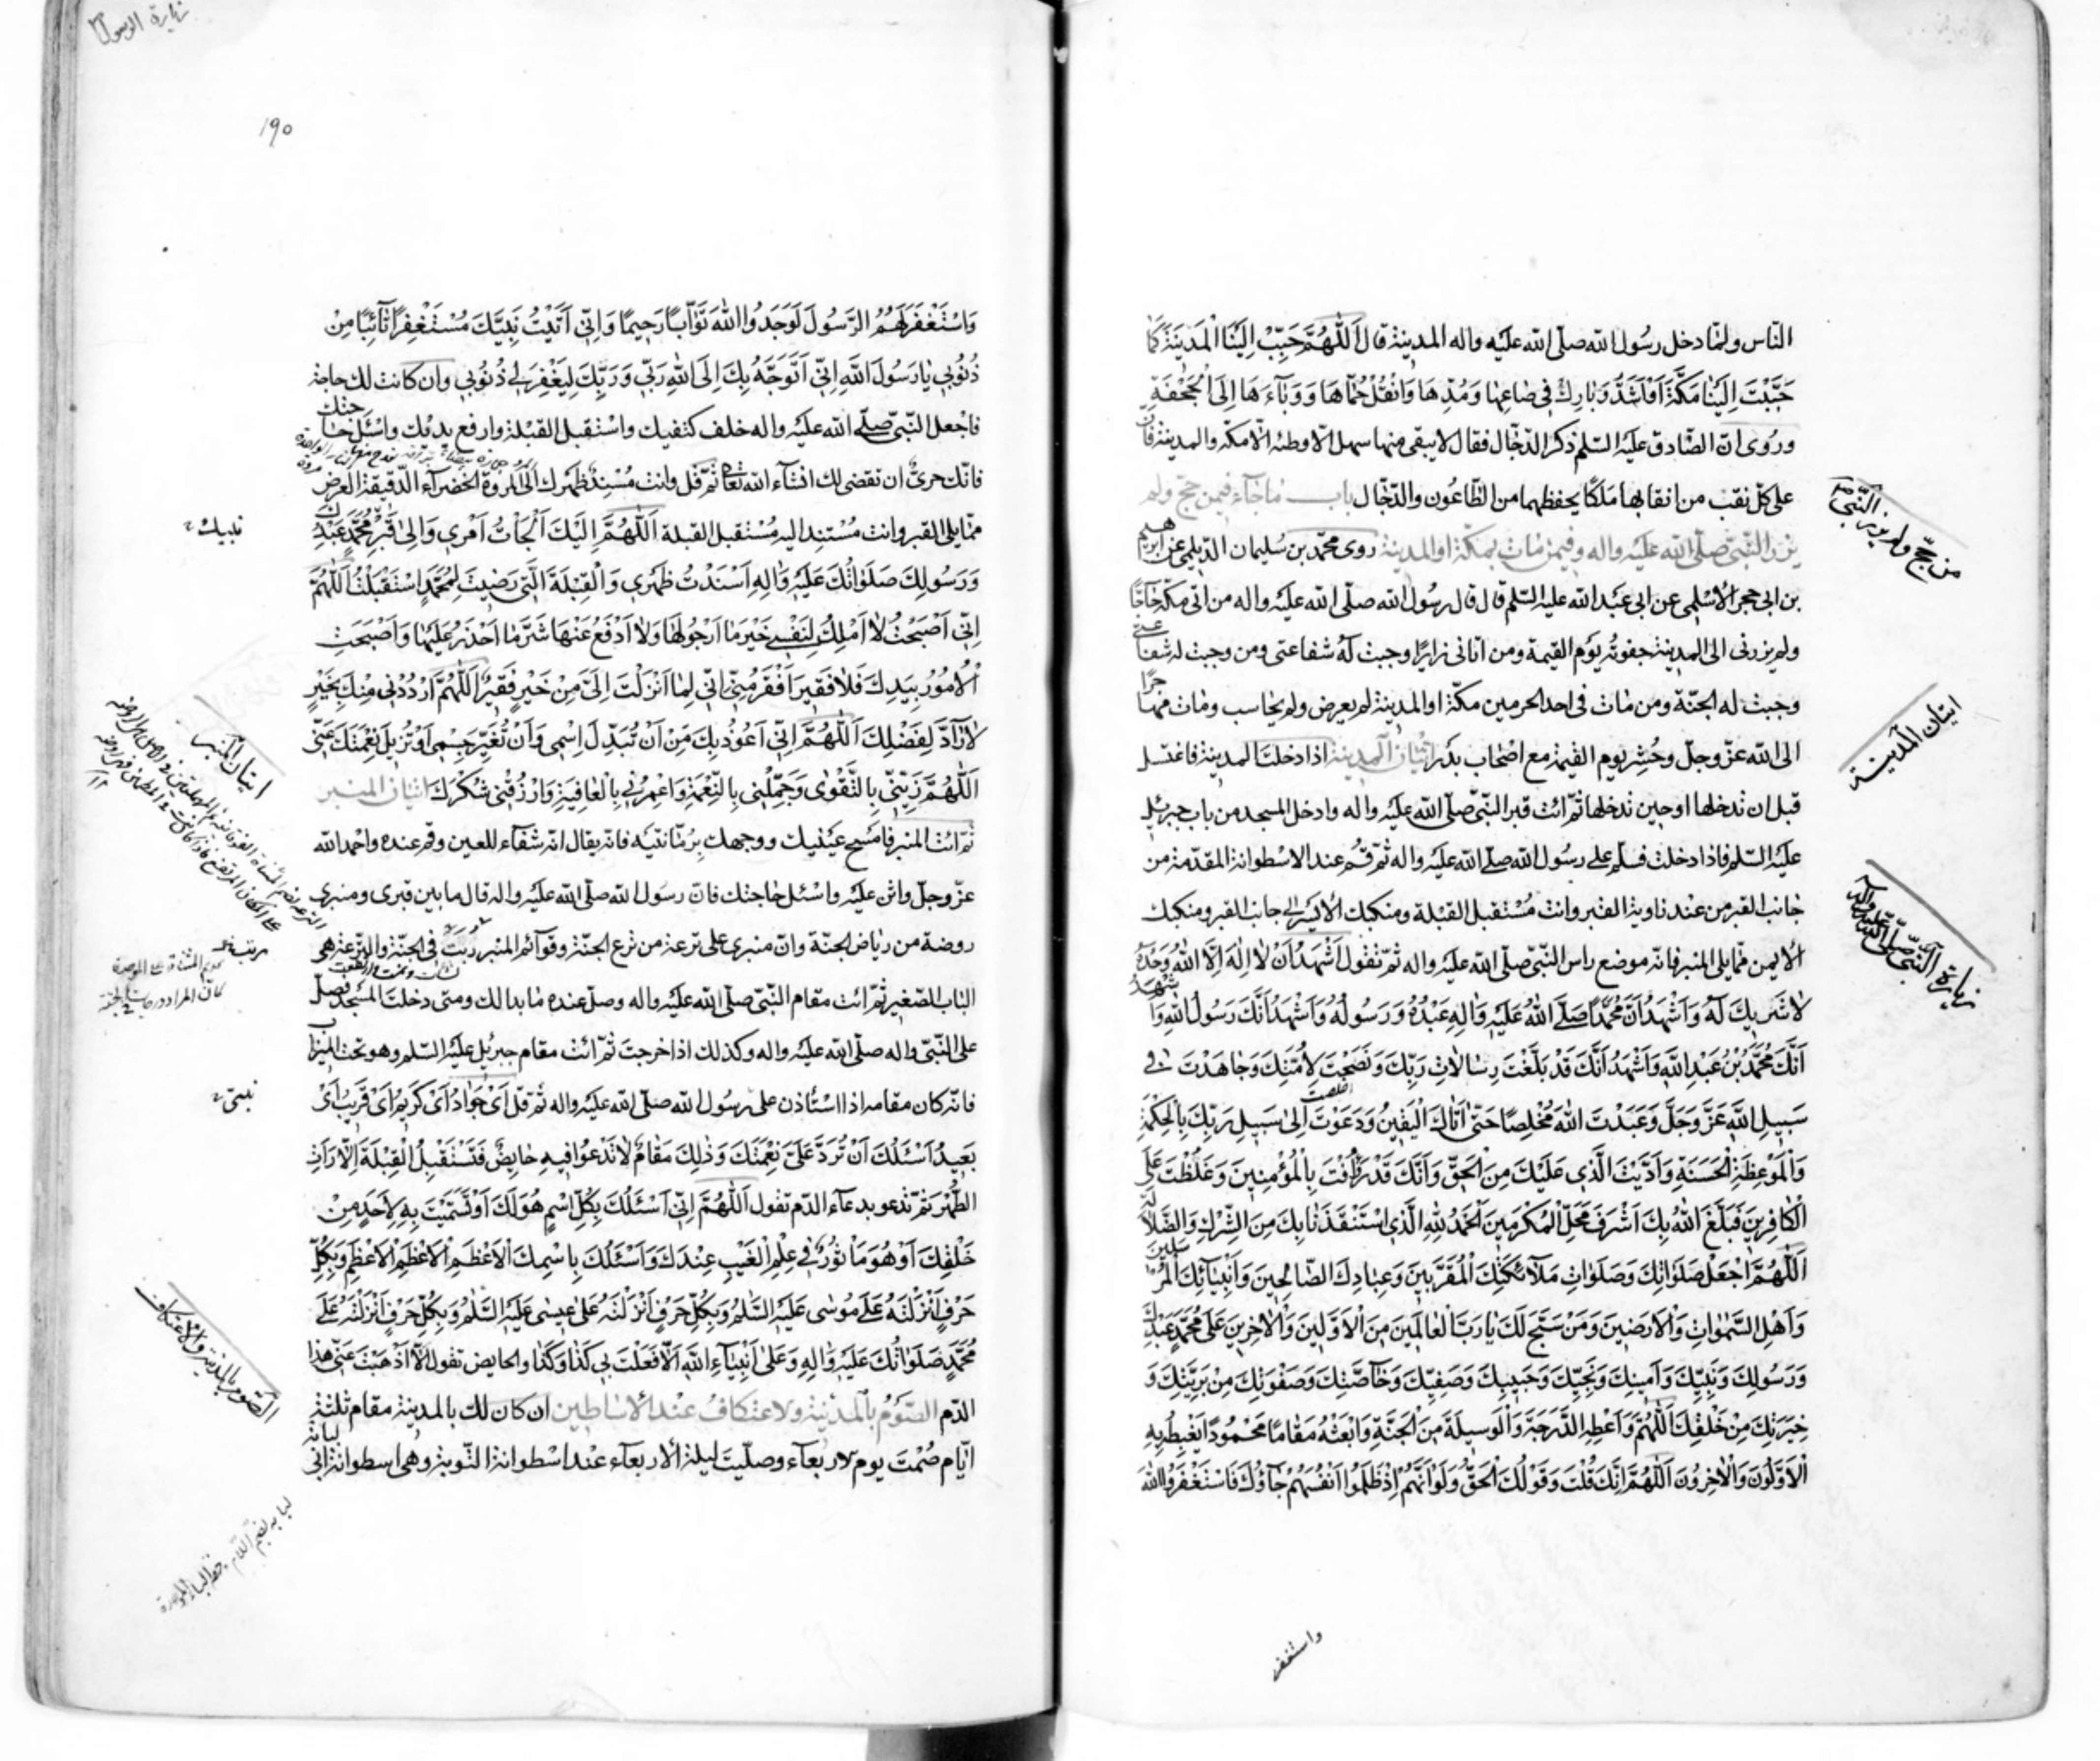 النّاس ولمّا دخل رسُول الله صلّى الله عليه واله المدينة قال اَللّٰهُمَّ حَبِّبْ اِلَيْنَا الْمَدينَةَ كَمٰا
حَبَّبْتَ اِلَيْنٰا مَكَّةَ اَوْ اَشَدَّ وَبٰارِكْ فِي صٰاعِهٰا وَمُدِّهٰا وَانْقُلْ حُمّٰاهٰا وَوَبٰآءَهٰا اِلَى الْجُحْفَةِ
ورُوى انّ الصّادق عليه السّلم ذكر الدّجّال فقال لا يبقى منها سهل الّا وطئه الّا مكّة والمدينة فانّ
على كلّ نقب من انقابها مَلَكًا يحفظهما من الطّاعُون والدّجّال باب ما جآء فيمن حجّ ولم
يزر النّبيّ صلّى الله عليه واله وفيمن مات بمكّة او المدينة روى محمّد بن سُليمان الدّيلمي عن ابرهيم
بن ابى حجر الاسْلمى عن ابى عبد الله عليه السّلم قال قال رسُول الله صلّى الله عليه واله من اتى مكّة حٰاجًّا
ولم يزرنى الى المدينة جفوته يوم القيمة ومن اتانى زايرًا وجبت له شفاعتى ومن وجبت له شفاعتى
وجبت له الجنّة ومن مات فى احد الحرمين مكّة او المدينة لم يعرض ولم يحاسب ومات مهاجرًا
الى الله عزّ وجلّ وحُشِر يوم القيمة مع اصْحاب بدر اتيان المدينة اذا دخلت المدينة فاغتسل
قبل ان تدخلها او حين تدخلها ثمّ ائت قبر النّبيّ صلّى الله عليه واله وادخل المسجد من باب جبرئيل
عليه السّلم فاذا دخلت فسلّم على رسُول الله صلّى الله عليه واله ثمّ قُم عند الاسطوانة المقدّمة من
جانب القبر من عند زاوية القبر وانت مُسْتقبل القبلة ومنكبك الأيسر الى جانب القبر ومنكبك
الايمن ممّا يلى المنبر فانّه موضع راس النّبيّ صلّى الله عليه واله ثمّ تقول اَشْهَدُ اَنْ لٰا اِلٰهَ اِلَّا اللّٰهُ وَحْدَهُ
لٰا شَريكَ لَهُ وَاَشْهَدُ اَنَّ مُحَمَّدًا صَلَّى اللّٰهُ عَلَيْهِ وَاٰلِهِ عَبْدُهُ وَرَسُولُهُ وَاَشْهَدُ اَنَّكَ رَسُولُ اللّٰهِ وَاَشْهَدُ
اَنَّكَ مُحَمَّدُ بْنُ عَبْدِ اللّٰهِ وَاَشْهَدُ اَنَّكَ قَدْ بَلَّغْتَ رِسٰالٰاتِ رَبِّكَ وَنَصَحْتَ لِاُمَّتِكَ وَجٰاهَدْتَ فِي
سَبيلِ اللّٰهِ عَزَّ وَجَلَّ وَعَبَدْتَ اللّٰهَ مُخْلِصًا حَتّٰى اَتٰاكَ الْيَقينُ وَدَعَوْتَ اِلٰى سَبيلِ رَبِّكَ بِالْحِكْمَةِ
وَالْمَوْعِظَةِ الْحَسَنَةِ وَاَدَّيْتَ الَّذِي عَلَيْكَ مِنَ الْحَقِّ وَاَنَّكَ قَدْ رَؤُفْتَ بِالْمُؤْمِنينَ وَغَلُظْتَ عَلَى
الْكٰافِرينَ فَبَلَغَ اللّٰهُ بِكَ اَشْرَفَ مَحَلِّ الْمُكْرَمينَ اَلْحَمْدُ لِلّٰهِ الَّذِي اسْتَنْقَذَنٰا بِكَ مِنَ الشِّرْكِ وَالضَّلٰالَةِ
اَللّٰهُمَّ اجْعَلْ صَلَوٰاتِكَ وَصَلَوٰاتِ مَلٰآئِكَتِكَ الْمُقَرَّبينَ وَعِبٰادِكَ الصّٰالِحينَ وَاَنْبِيٰآئِكَ الْمُرْسَلينَ
وَاَهْلِ السَّمٰوٰاتِ وَالْاَرَضينَ وَمَنْ سَبَّحَ لَكَ يٰا رَبَّ الْعٰالَمينَ مِنَ الْاَوَّلينَ وَالْاٰخِرينَ عَلٰى مُحَمَّدٍ عَبْدِكَ
وَرَسُولِكَ وَنَبِيِّكَ وَاَمينِكَ وَنَجِيِّكَ وَحَبيبِكَ وَصَفِيِّكَ وَخٰآصَّتِكَ وَصَفْوَتِكَ مِنْ بَرِيَّتِكَ وَ
خِيَرَتِكَ مِنْ خَلْقِكَ اَللّٰهُمَّ وَاَعْطِهِ الدَّرَجَةَ وَالْوَسيلَةَ مِنَ الْجَنَّةِ وَابْعَثْهُ مَقٰامًا مَحْمُودًا يَغْبِطُهُ بِهِ
الْاَوَّلُونَ وَالْاٰخِرُونَ اَللّٰهُمَّ اِنَّكَ قُلْتَ وَقَوْلُكَ الْحَقُّ وَلَوْ اَنَّهُمْ اِذْ ظَلَمُوا اَنْفُسَهُمْ جٰآؤُكَ فَاسْتَغْفَرُوا اللّٰهَ
واستغفر
من حجّ ولم يزر النّبيّ ص
اتيان المدينة
زيارة النّبيّ صلّى الله عليه وآله
زيارة الرسول
١٩٠
وَاسْتَغْفَرَ لَهُمُ الرَّسُولَ لَوَجَدُوا اللّٰهَ تَوّٰابًا رَحيمًا وَاِنِّي اَتَيْتُ نَبِيَّكَ مُسْتَغْفِرًا تٰآئِبًا مِنْ
ذُنُوبِي يٰا رَسُولَ اللّٰهِ اِنِّي اَتَوَجَّهُ بِكَ اِلَى اللّٰهِ رَبِّي وَرَبِّكَ لِيَغْفِرَ لِي ذُنُوبِي وان كانت لك حاجة
فاجعل النّبيّ صلّى الله عليه واله خلف كتفيك واستقبل القبلة وارفع يديك واسئل حاجتك
فانّك حرىّ ان تقضى لك انشآء الله تعالى ثمّ قل وانت مُسْنِد ظهرك الى المروة الخضرآء الدّقيقة العرض
ممّا يلى القبر وانت مُسْتند اليه مُسْتقبل القبلة اَللّٰهُمَّ اِلَيْكَ اَلْجَأْتُ اَمْرِي وَاِلٰى قَبْرِ مُحَمَّدٍ عَبْدِكَ
وَرَسُولِكَ صَلَوٰاتُكَ عَلَيْهِ وَاٰلِهِ اَسْنَدْتُ ظَهْرِي وَالْقِبْلَةَ الَّتِي رَضيتَ لِمُحَمَّدٍ اسْتَقْبَلْتُ اَللّٰهُمَّ
اِنِّي اَصْبَحْتُ لٰا اَمْلِكُ لِنَفْسِي خَيْرَ مٰا اَرْجُو لَهٰا وَلٰا اَدْفَعُ عَنْهٰا شَرَّ مٰا اَحْذَرُ عَلَيْهٰا وَاَصْبَحَتِ
الْاُمُورُ بِيَدِكَ فَلٰا فَقيرَ اَفْقَرُ مِنِّي اِنِّي لِمٰا اَنْزَلْتَ اِلَيَّ مِنْ خَيْرٍ فَقيرٌ اَللّٰهُمَّ ارْدُدْنِي مِنْكَ بِخَيْرٍ
لٰا رٰآدَّ لِفَضْلِكَ اَللّٰهُمَّ اِنِّي اَعُوذُ بِكَ مِنْ اَنْ تُبَدِّلَ اسْمِي وَاَنْ تُغَيِّرَ جِسْمِي اَوْ تُزيلَ نِعْمَتَكَ عَنِّي
اَللّٰهُمَّ زَيِّنِّي بِالتَّقْوٰى وَجَمِّلْنِي بِالنِّعْمَةِ وَاعْمُرْنِي بِالْعٰافِيَةِ وَارْزُقْنِي شُكْرَكَ اتيان المنبر
ثمّ ائت المنبر فامسح عينيك ووجهك برُمّانتيه فانّه يقال انّه شفآء للعين وقم عنده واحمد الله
عزّ وجلّ واثن عليه واسئل حاجتك فانّ رسول الله صلّى الله عليه واله قال ما بين قبرى ومنبرى
روضة من رياض الجنّة وانّ منبرى على ترعة من ترع الجنّة وقوآئم المنبر رُبّت فى الجنّة والتّرعة هى
الباب الصّغير ثمّ ائت مقام النّبيّ صلّى الله عليه واله وصلّ عنده ما بدا لك ومتى دخلت المسجد فصلّ
على النّبيّ واله صلّى الله عليه واله وكذلك اذا خرجت ثمّ ائت مقام جبرئيل عليه السّلم وهو تحت الميزاب
فانّه كان مقامه اذا استأذن على رسول الله صلّى الله عليه واله ثمّ قل اَىْ جَوٰادُ اَىْ كَريمُ اَىْ قَريبُ اَىْ
بَعيدُ اَسْئَلُكَ اَنْ تَرُدَّ عَلَيَّ نِعْمَتَكَ وَذٰلِكَ مَقٰامٌ لٰا تَدْعُوا فيهِ حٰايِضٌ فَتَسْتَقْبِلُ الْقِبْلَةَ اِلّٰا رَاَتِ
الطُّهْرَ ثمّ تدعو بدعآء الدّم تقول اَللّٰهُمَّ اِنِّي اَسْئَلُكَ بِكُلِّ اسْمٍ هُوَ لَكَ اَوْ تَسَمَّيْتَ بِهِ لِاَحَدٍ مِنْ
خَلْقِكَ اَوْ هُوَ مَأْثُورٌ فِي عِلْمِ الْغَيْبِ عِنْدَكَ وَاَسْئَلُكَ بِاسْمِكَ الْاَعْظَمِ الْاَعْظَمِ الْاَعْظَمِ وَبِكُلِّ
حَرْفٍ اَنْزَلْتَهُ عَلٰى مُوسٰى عَلَيْهِ السَّلٰمُ وَبِكُلِّ حَرْفٍ اَنْزَلْتَهُ عَلٰى عيسٰى عَلَيْهِ السَّلٰمُ وَبِكُلِّ حَرْفٍ اَنْزَلْتَهُ عَلٰى
مُحَمَّدٍ صَلَوٰاتُكَ عَلَيْهِ وَاٰلِهِ وَعَلٰى اَنْبِيٰآءِ اللّٰهِ اَلّٰا فَعَلْتَ بِي كَذٰا وَكَذٰا والحايض تقول اَلّٰا اَذْهَبْتَ عَنِّي هٰذَا
الدّم الصّوم بالمدينة والاعتكاف عند الاساطين ان كان لك بالمدينة مقام ثلثة
ايّام صُمْتَ يوم الاربعآء وصلّيت ليلة الأربعآء عند اسطوانة التّوبة وهى اسطوانة ابى لبابة
نبيك
اتيان المنبر
رتبت
نبىّ
الصّوم بالمدينة والاعتكاف
لبابه بضم اللام وخفة الباء الموحدة